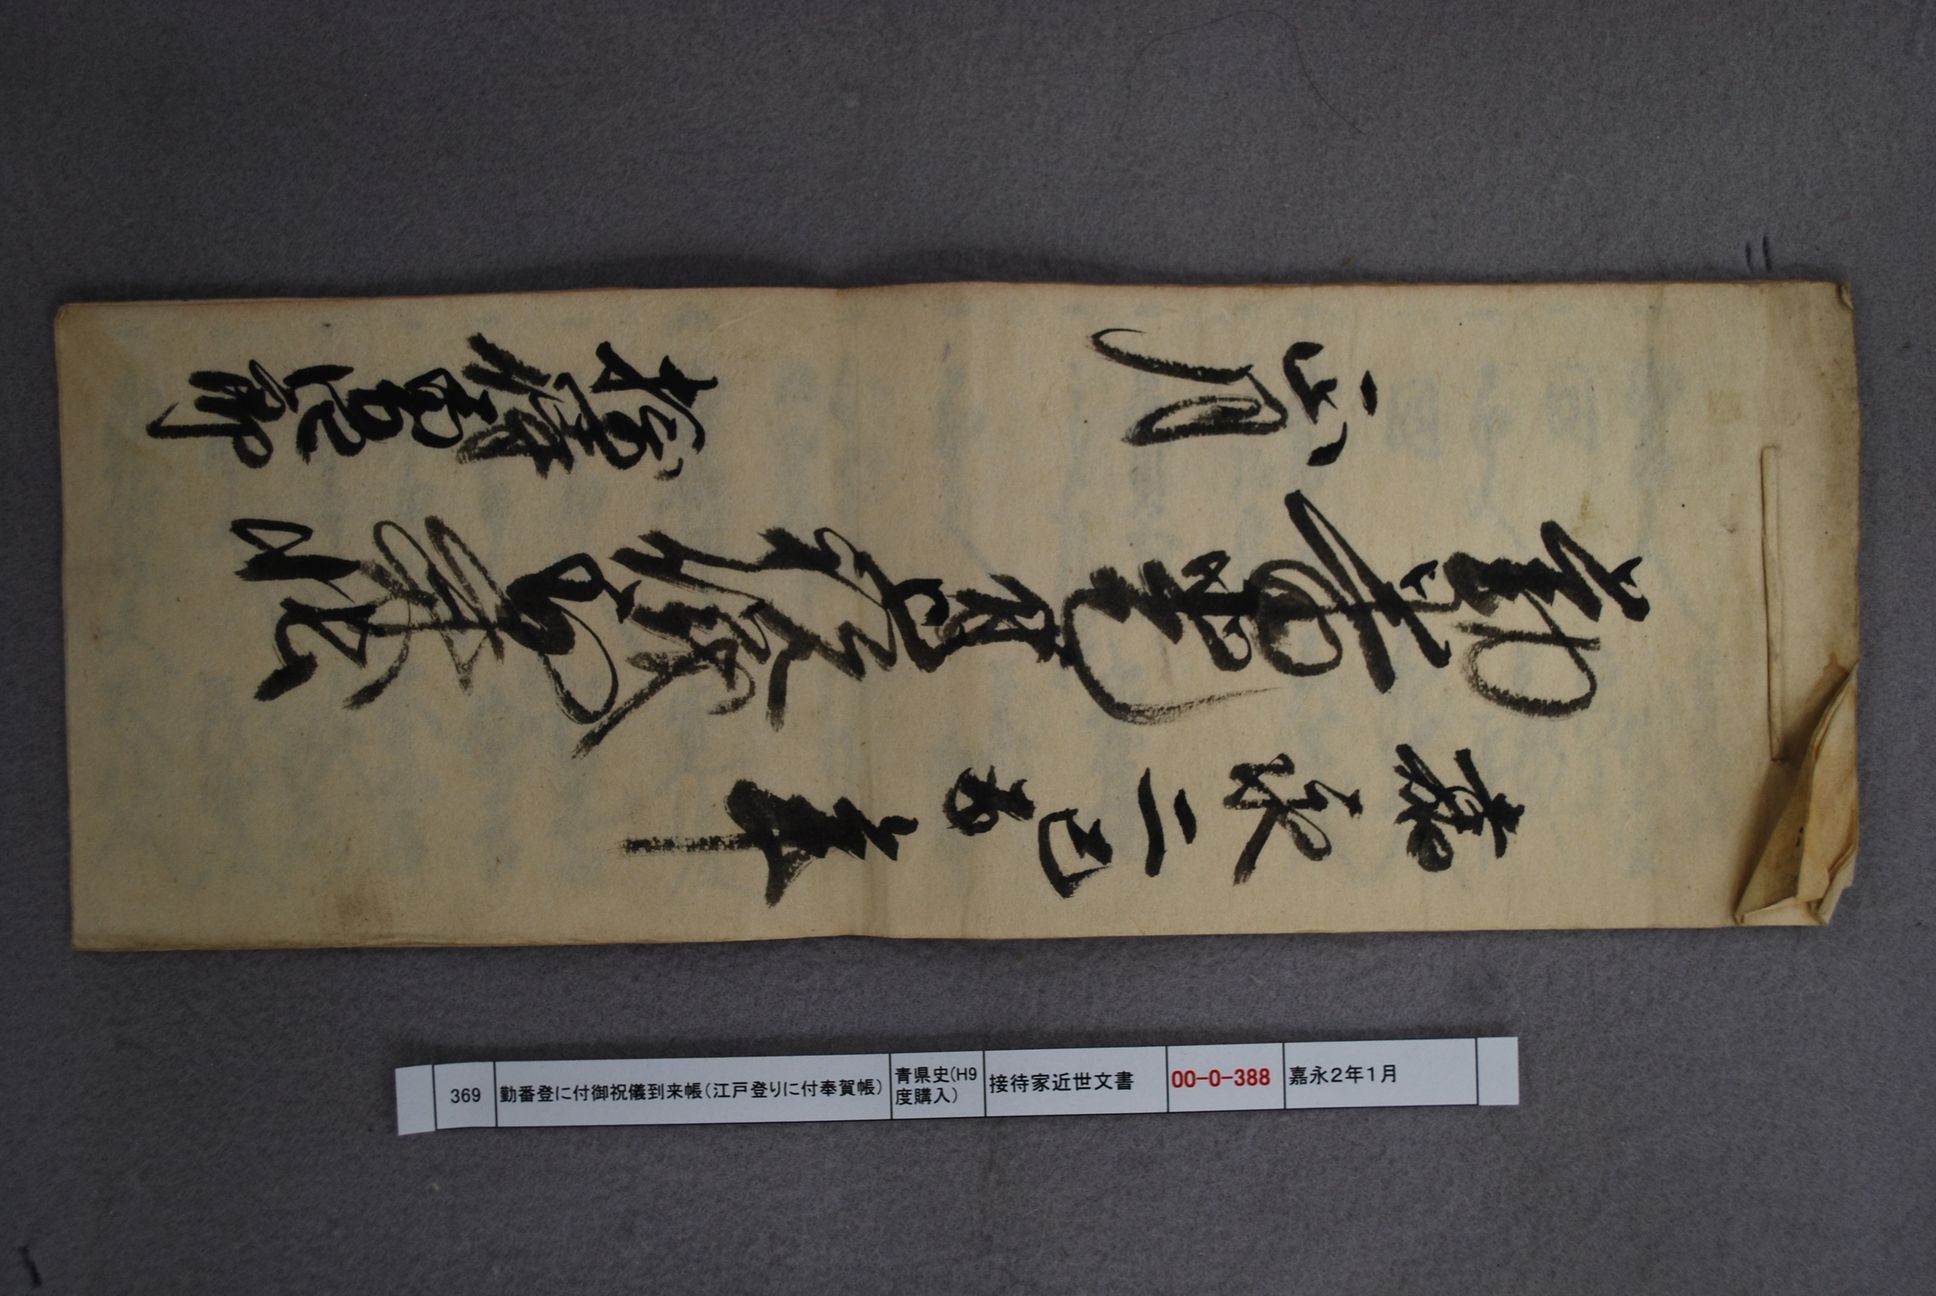 嘉永二己酉年
勤番登付御祝儀到来帳
正月
接待
369 勤番登に付御祝儀到来帳（江戸登りに付奉賀帳） 青県史（H9度購入） 接待家近世文書 00-0-388 嘉永2年1月